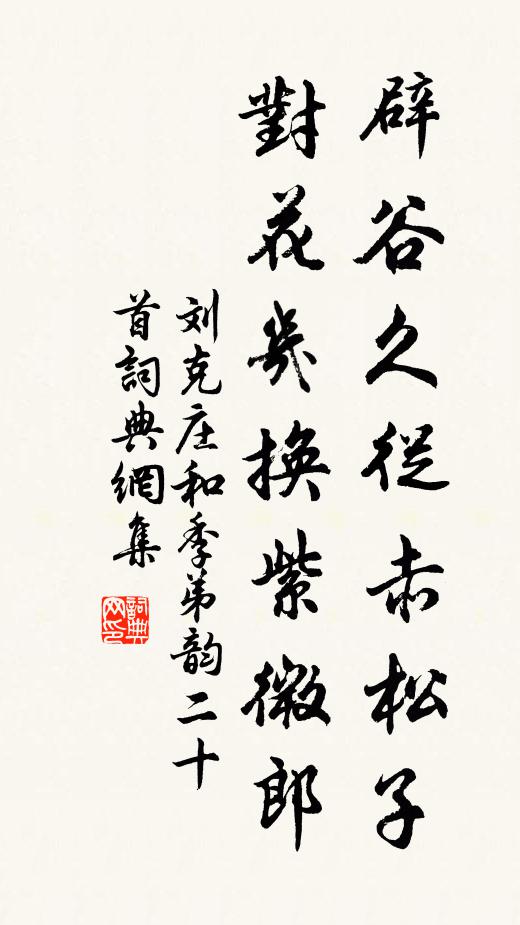 辟谷久從赤松子
對花幾換紫微郎
刘克庄和季弟韵二十
首詞典網集
詞典网印